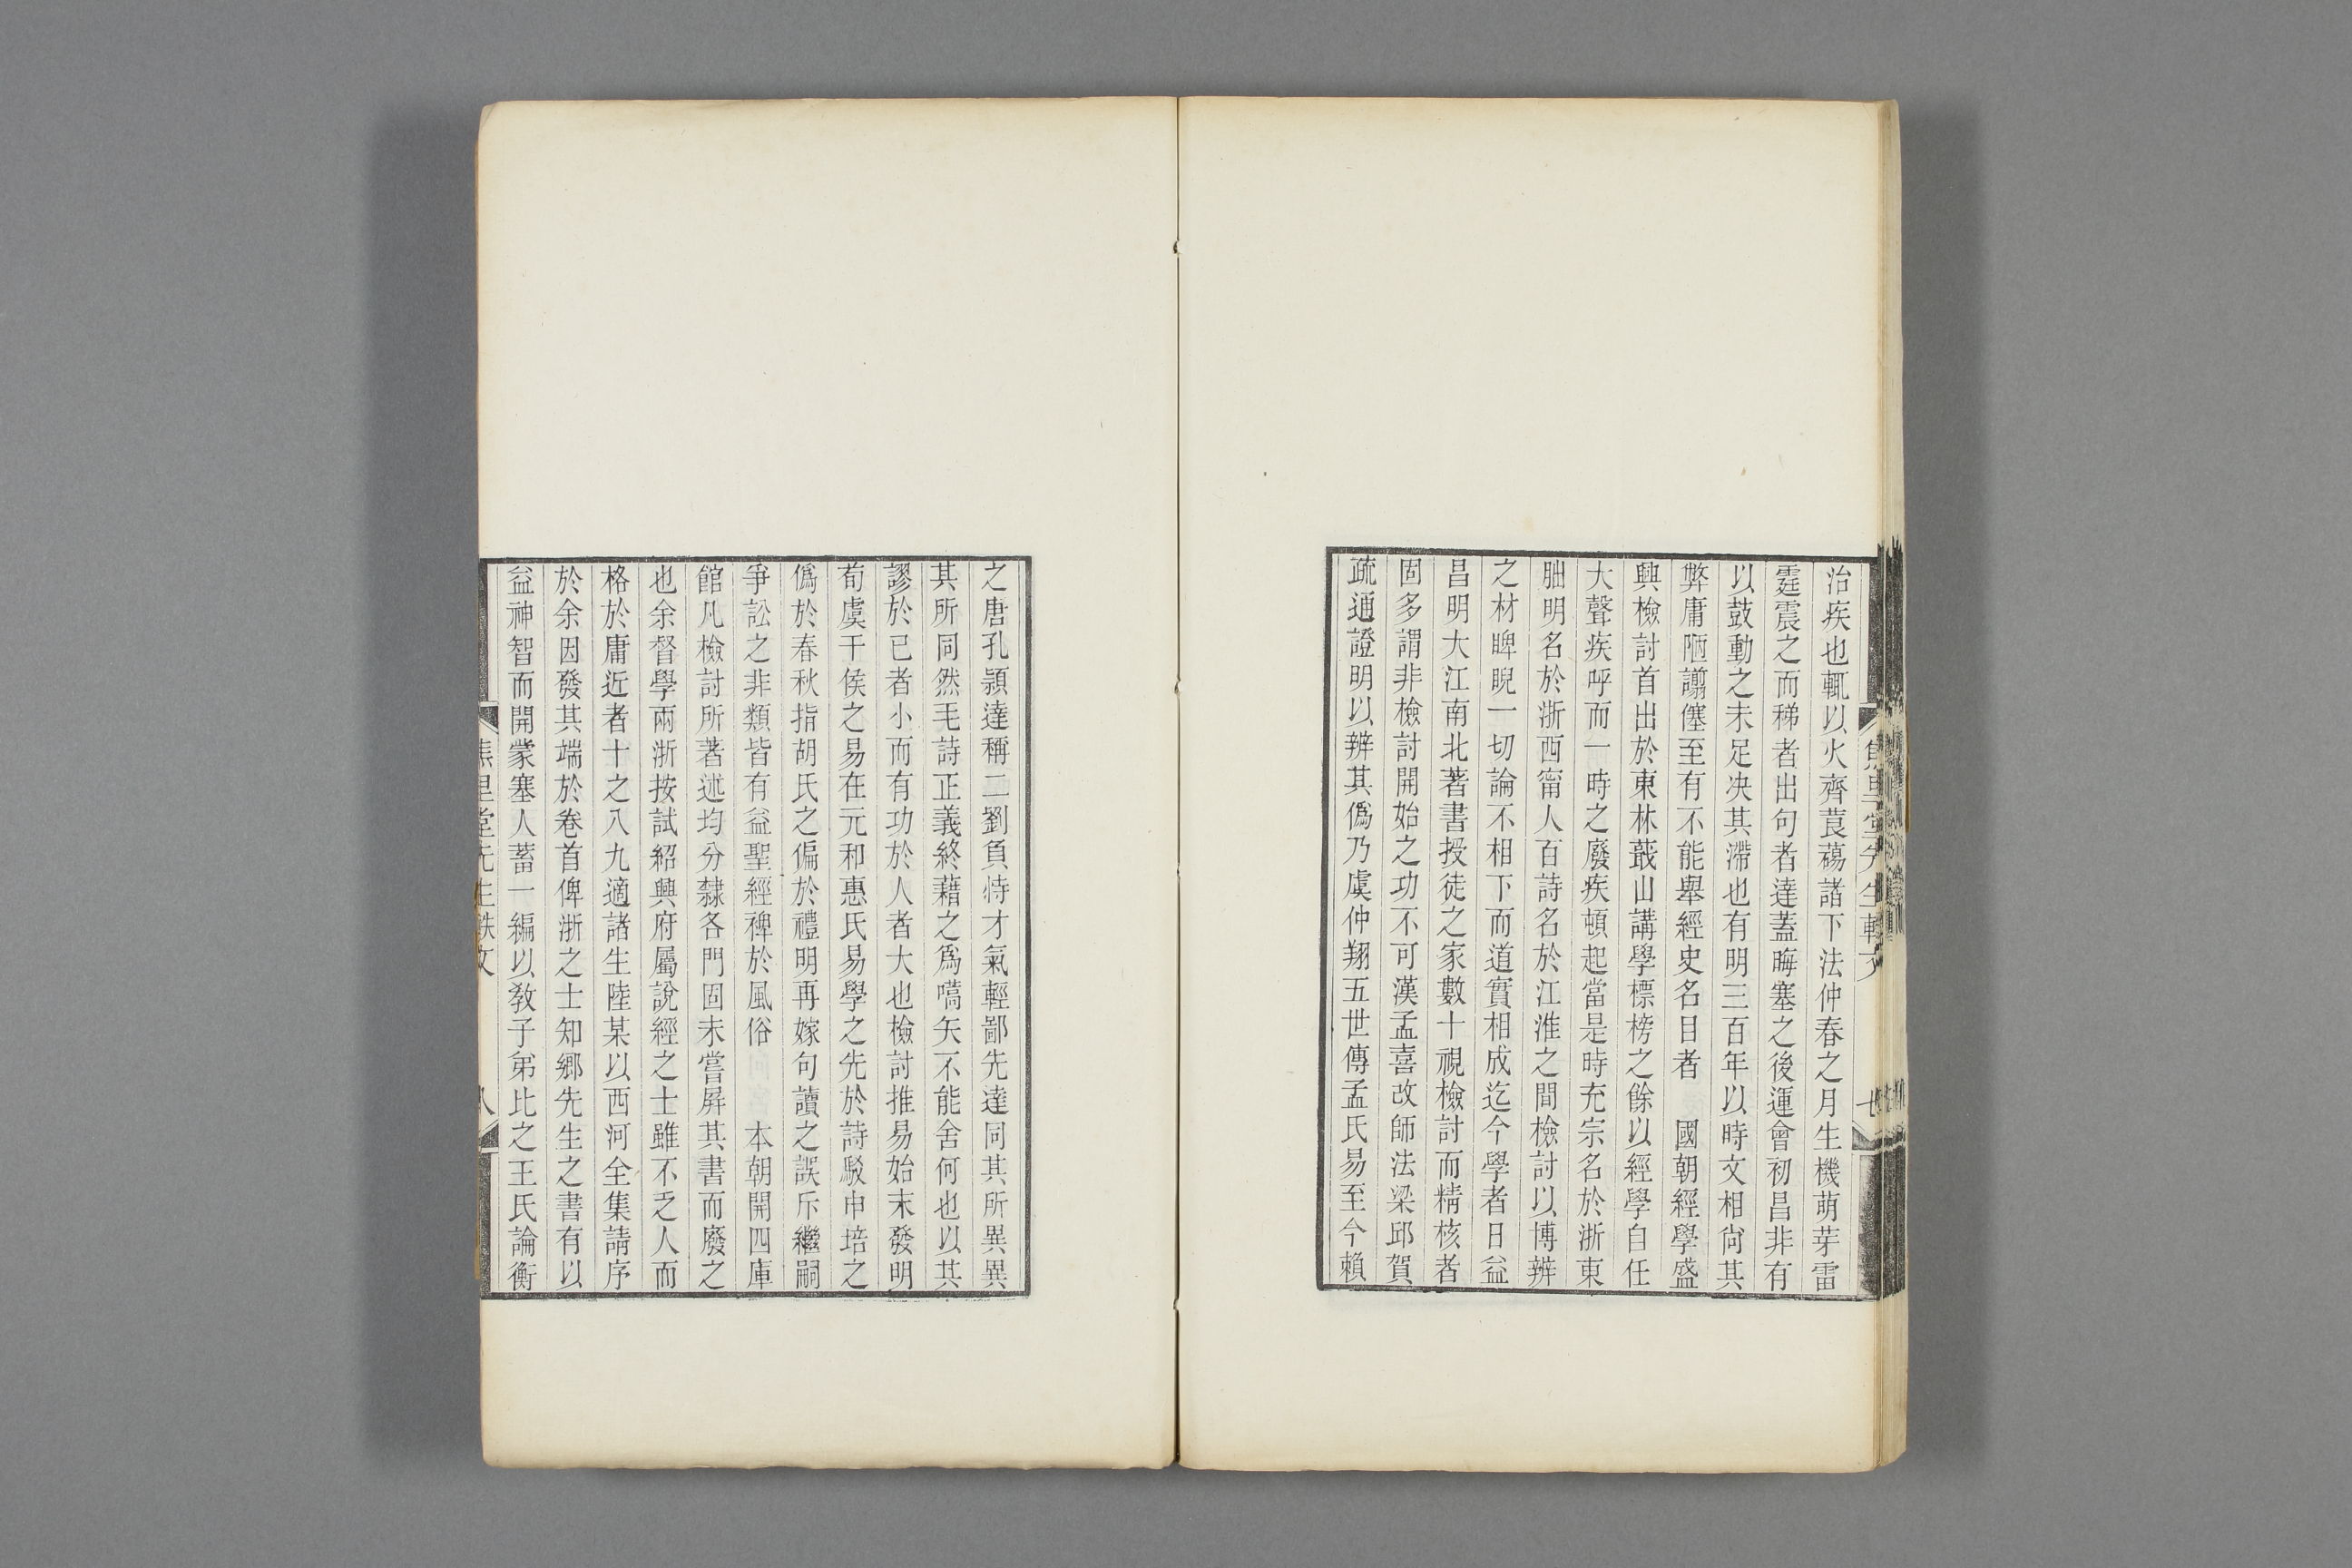 治疾也輒以火齊莨蕩諸下法仲春之月生機萌芽雷
霆震之而稊者出句者達蓋晦塞之後運會初昌非有
以鼓動之未足决其滯也有明三百年以時文相尙其
弊庸陋謭僿至有不能舉經史名目者　國朝經學盛
興檢討首出於東林蕺山講學標榜之餘以經學自任
大聲疾呼而一時之廢疾頓起當是時充宗名於浙東
朏明名於浙西甯人百詩名於江淮之間檢討以博辨
之材睥睨一切論不相下而道實相成迄今學者日益
昌明大江南北著書授徒之家數十視檢討而精核者
固多謂非檢討開始之功不可漢孟喜改師法梁邱賀
疏通證明以辨其僞乃虞仲翔五世傳孟氏易至今賴
焦里堂先生軼文
七
之唐孔穎達稱二劉負恃才氣輕鄙先達同其所異異
其所同然毛詩正義終藉之爲嚆矢不能舍何也以其
謬於已者小而有功於人者大也檢討推易始末發明
荀虞干侯之易在元和惠氏易學之先於詩駁申培之
僞於春秋指胡氏之偏於禮明再嫁句讀之誤斥繼嗣
爭訟之非類皆有益聖經裨於風俗　本朝開四庫
館凡檢討所著述均分隸各門固未嘗屏其書而廢之
也余督學兩浙按試紹興府屬說經之士雖不乏人而
格於庸近者十之八九適諸生陸某以西河全集請序
於余因發其端於卷首俾浙之士知鄉先生之書有以
益神智而開蒙塞人蓄一編以敎子弟比之王氏論衡
焦里堂先生軼文
八